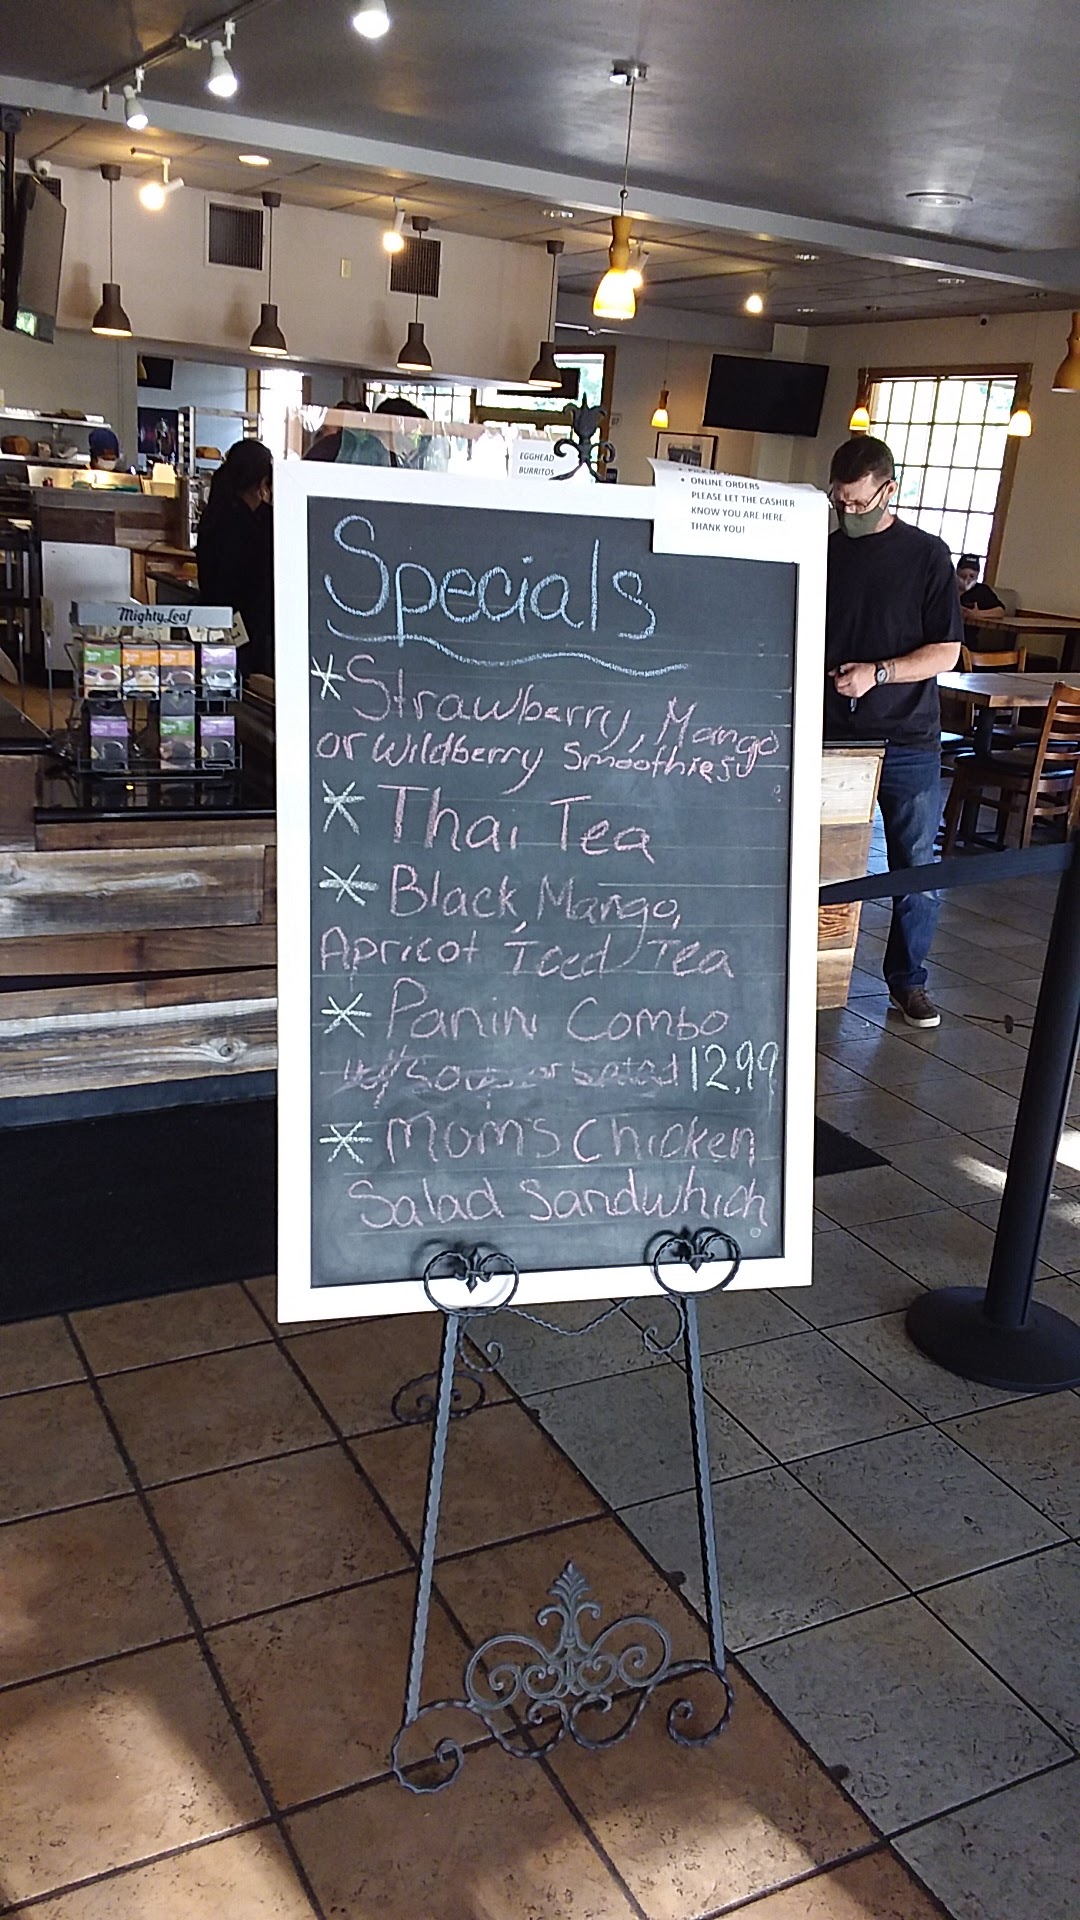 EGGHEAD
BURRITOS
• ONLINE ORDERS
PLEASE LET THE CASHIER
KNOW YOU ARE HERE.
THANK YOU!
Mighty Leaf
Specials
* Strawberry, Mango
or Wildberry Smoothies
* Thai Tea
* Black, Mango,
Apricot Iced Tea
* Panini Combo
w/ Soup or Salad 12.99
* Mom's Chicken
Salad Sandwhich